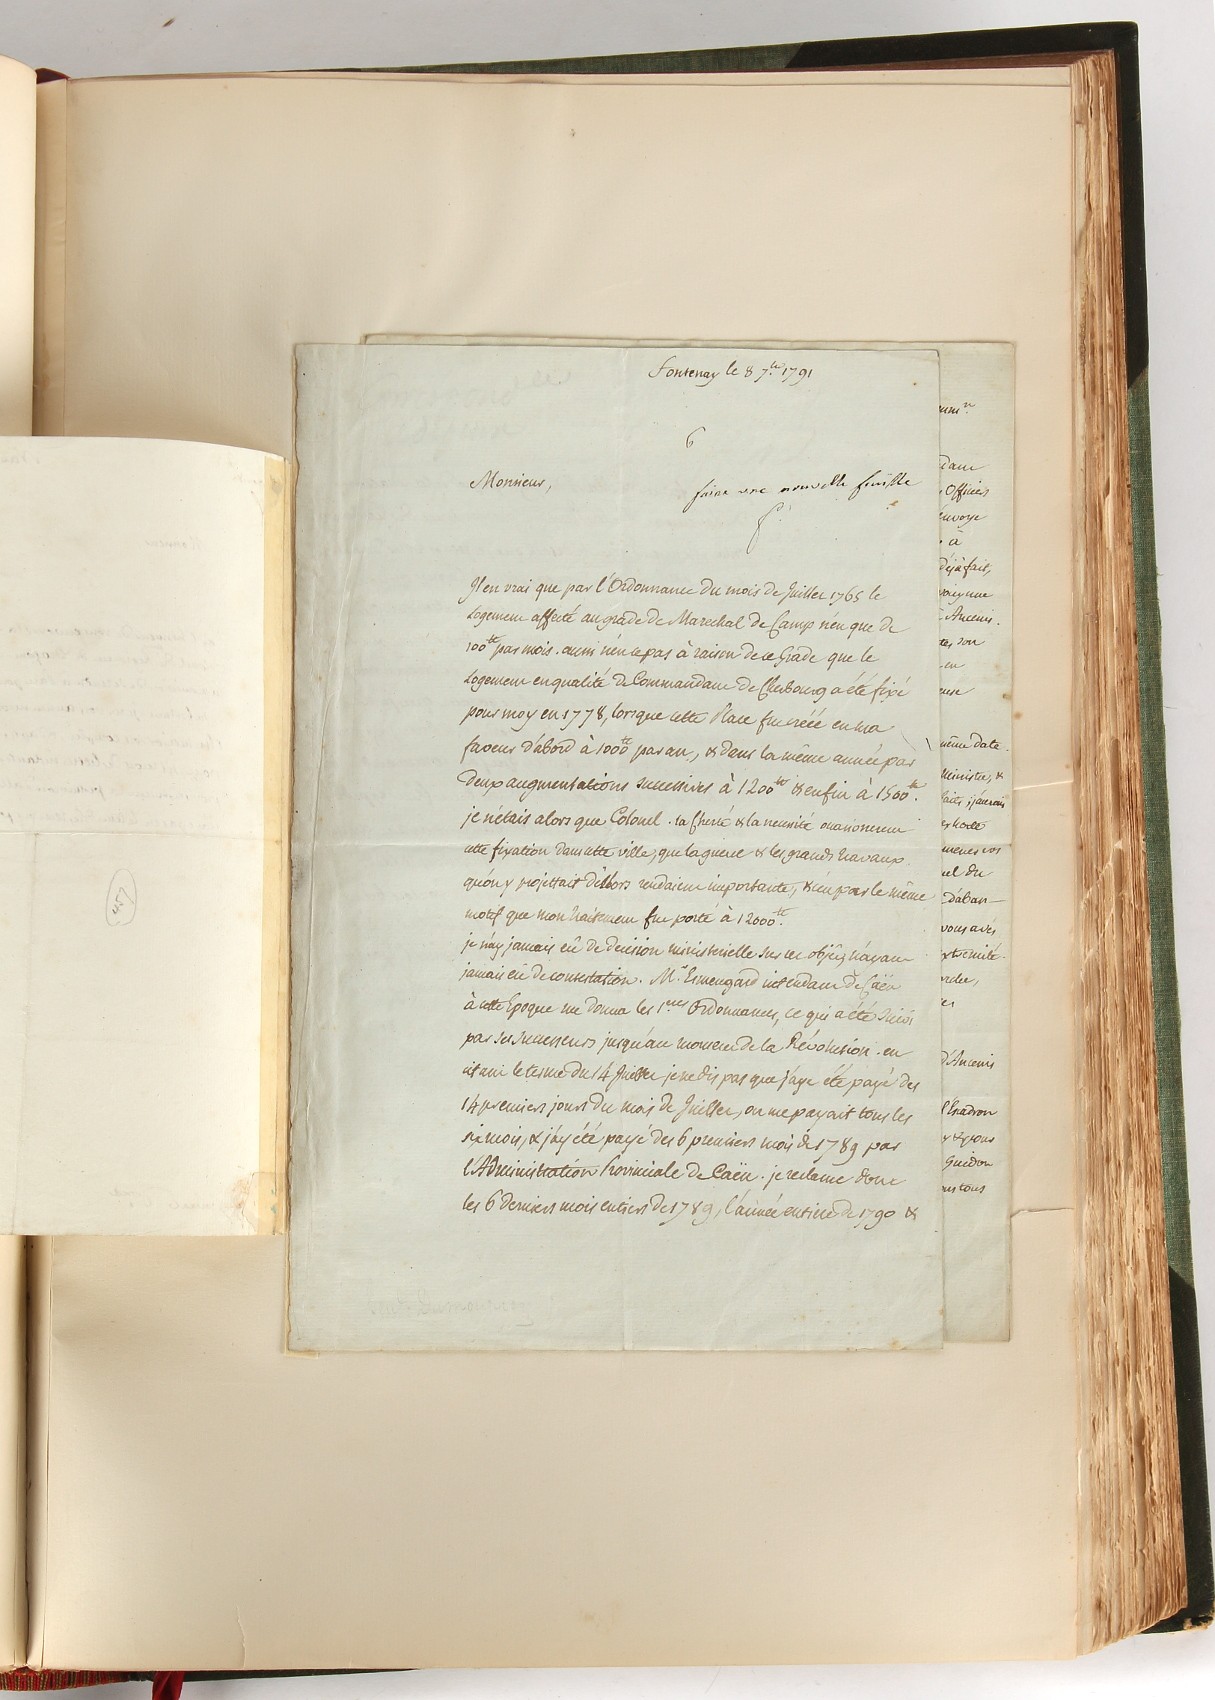 Fontenay le 8 7.bre 1791
6
Monsieur,
faire une nouvelle feuille
Il est vrai que par l'Ordonnance du mois de Juillet 1765 le
Logement affecté au grade de Marechal de Camp n'est que de
100tt par mois. aussi n'est ce pas à raison de ce Grade que le
Logement en qualité de Commandant de Cherbourg a été fixé
pour moy en 1778, lorsque cette Place fut créée en ma
faveur d'abord à 1000tt par an, & dans la même année par
Deux augmentations successives à 1200tt & enfin à 1500tt.
je n'étais alors que Colonel. la Cherté & la necessité occasionnerent
cette fixation dans cette ville, que la guerre & les grands travaux
qu'on y projettait dèslors rendaient importante, & c'est par le même
motif que mon traitement fut porté à 12000tt.
je n'ay jamais eû de decision ministerielle sur ces objets n'ayant
jamais eû de contestation. Mr. Esmengard intendant de Caën
à cette Epoque me donna les 1.res Ordonnances, ce qui a été suivi
par ses successeurs jusqu'au moment de la Révolution. en
citant le terme du 14 Juillet je ne dis pas que j'aye été payé des
14 premiers jours du mois de Juillet, on me payait tous les
six mois, & j'ay été payé des 6 premiers mois de 1789 par
l'Administration Provinciale de Caën. je reclame donc
les 6 derniers mois entiers de 1789, l'année entiere de 1790 &
dant
Officiers
envoye
à
déjà fait,
Ancenis.
son
en
même date.
Ministre, &
j'aurais
vos
du
d'aban-
vous avés
extremité.
d'Ancenis
l'Escadron
Guidon
tous